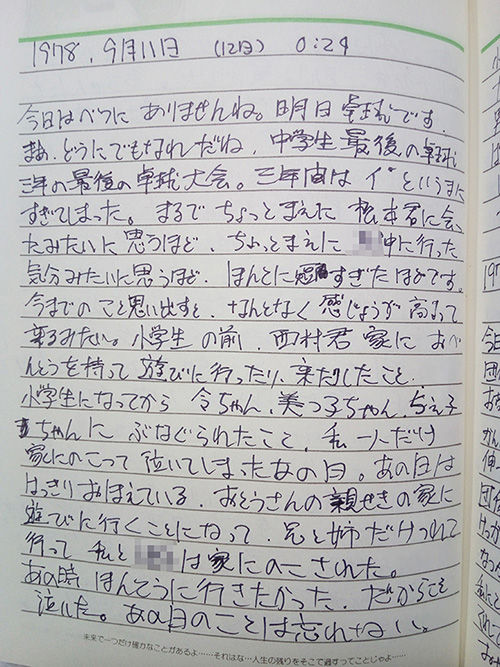 1978, 9月11日 (12日) 0:29
今日はべつに ありませんね。明日卓球です.
まあ、どうにでもなれだね. 中学生最後の卓球
三年の最後の卓球大会。三年間は というまに
すぎてしまった。まるで ちょっとまえに 松本君に会っ
たみたいに思うほど. ちょっとまえに 中に行った
気分みたいに思うほど. ほんとに短すぎたほどです.
今までのこと思い出すと、なんとなく 感じょうが高まって
来るみたい。小学生の前. 西村君家に おべ
んとうを持って遊びに行ったり、来たりしたこと.
小学生になってから 令ちゃん、美つ子ちゃん、ちえ子
ちゃんに ぶなぐられたこと、私一人だけ
家にのこって泣いてしまったあの日。あの日は
はっきりおぼえている. おとうさんの親せきの家に
遊びに行くことになって、兄と姉だけつれて
行って 私と は家にのこされた。
あの時 ほんとうに行きたかった. だからこそ
泣いた。あの日のことは忘れない。
未来で一つだけ確かなことがあるよ……それはな…人生の残りをそこで過すってことじゃよ……